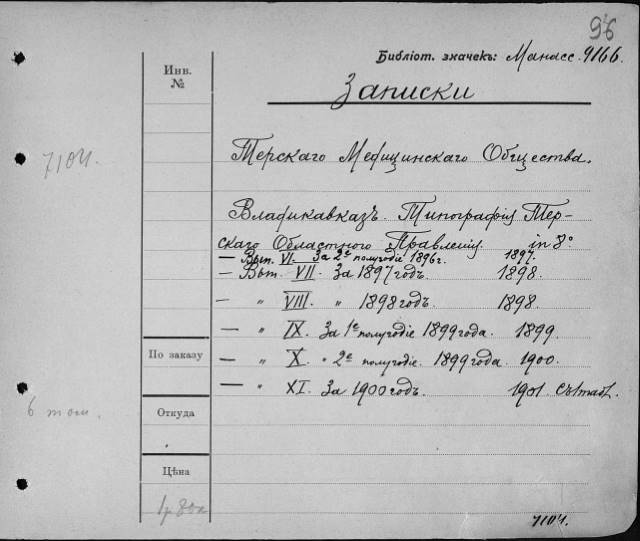 96
Библіот. значекъ: Манасс. 9166.
Инв.
№
Записки
710ч.
Терскаго Медицинскаго Общества.
Владикавказъ. Типографія Тер-
скаго Областного Правленія. in 8°
— Вып. VI. За 2е полугодіе 1896 г. 1897.
— Вып. VII. За 1897 годъ. 1898.
— " VIII. " 1898 годъ. 1898.
— " IX. За 1е полугодіе 1899 года. 1899
По заказу
— " X. " 2е полугодіе. 1899 года. 1900.
— " XI. За 1900 годъ. 1901. съ 1 табл.
6 том.
Откуда
Цѣна
1р 80к
710ч.